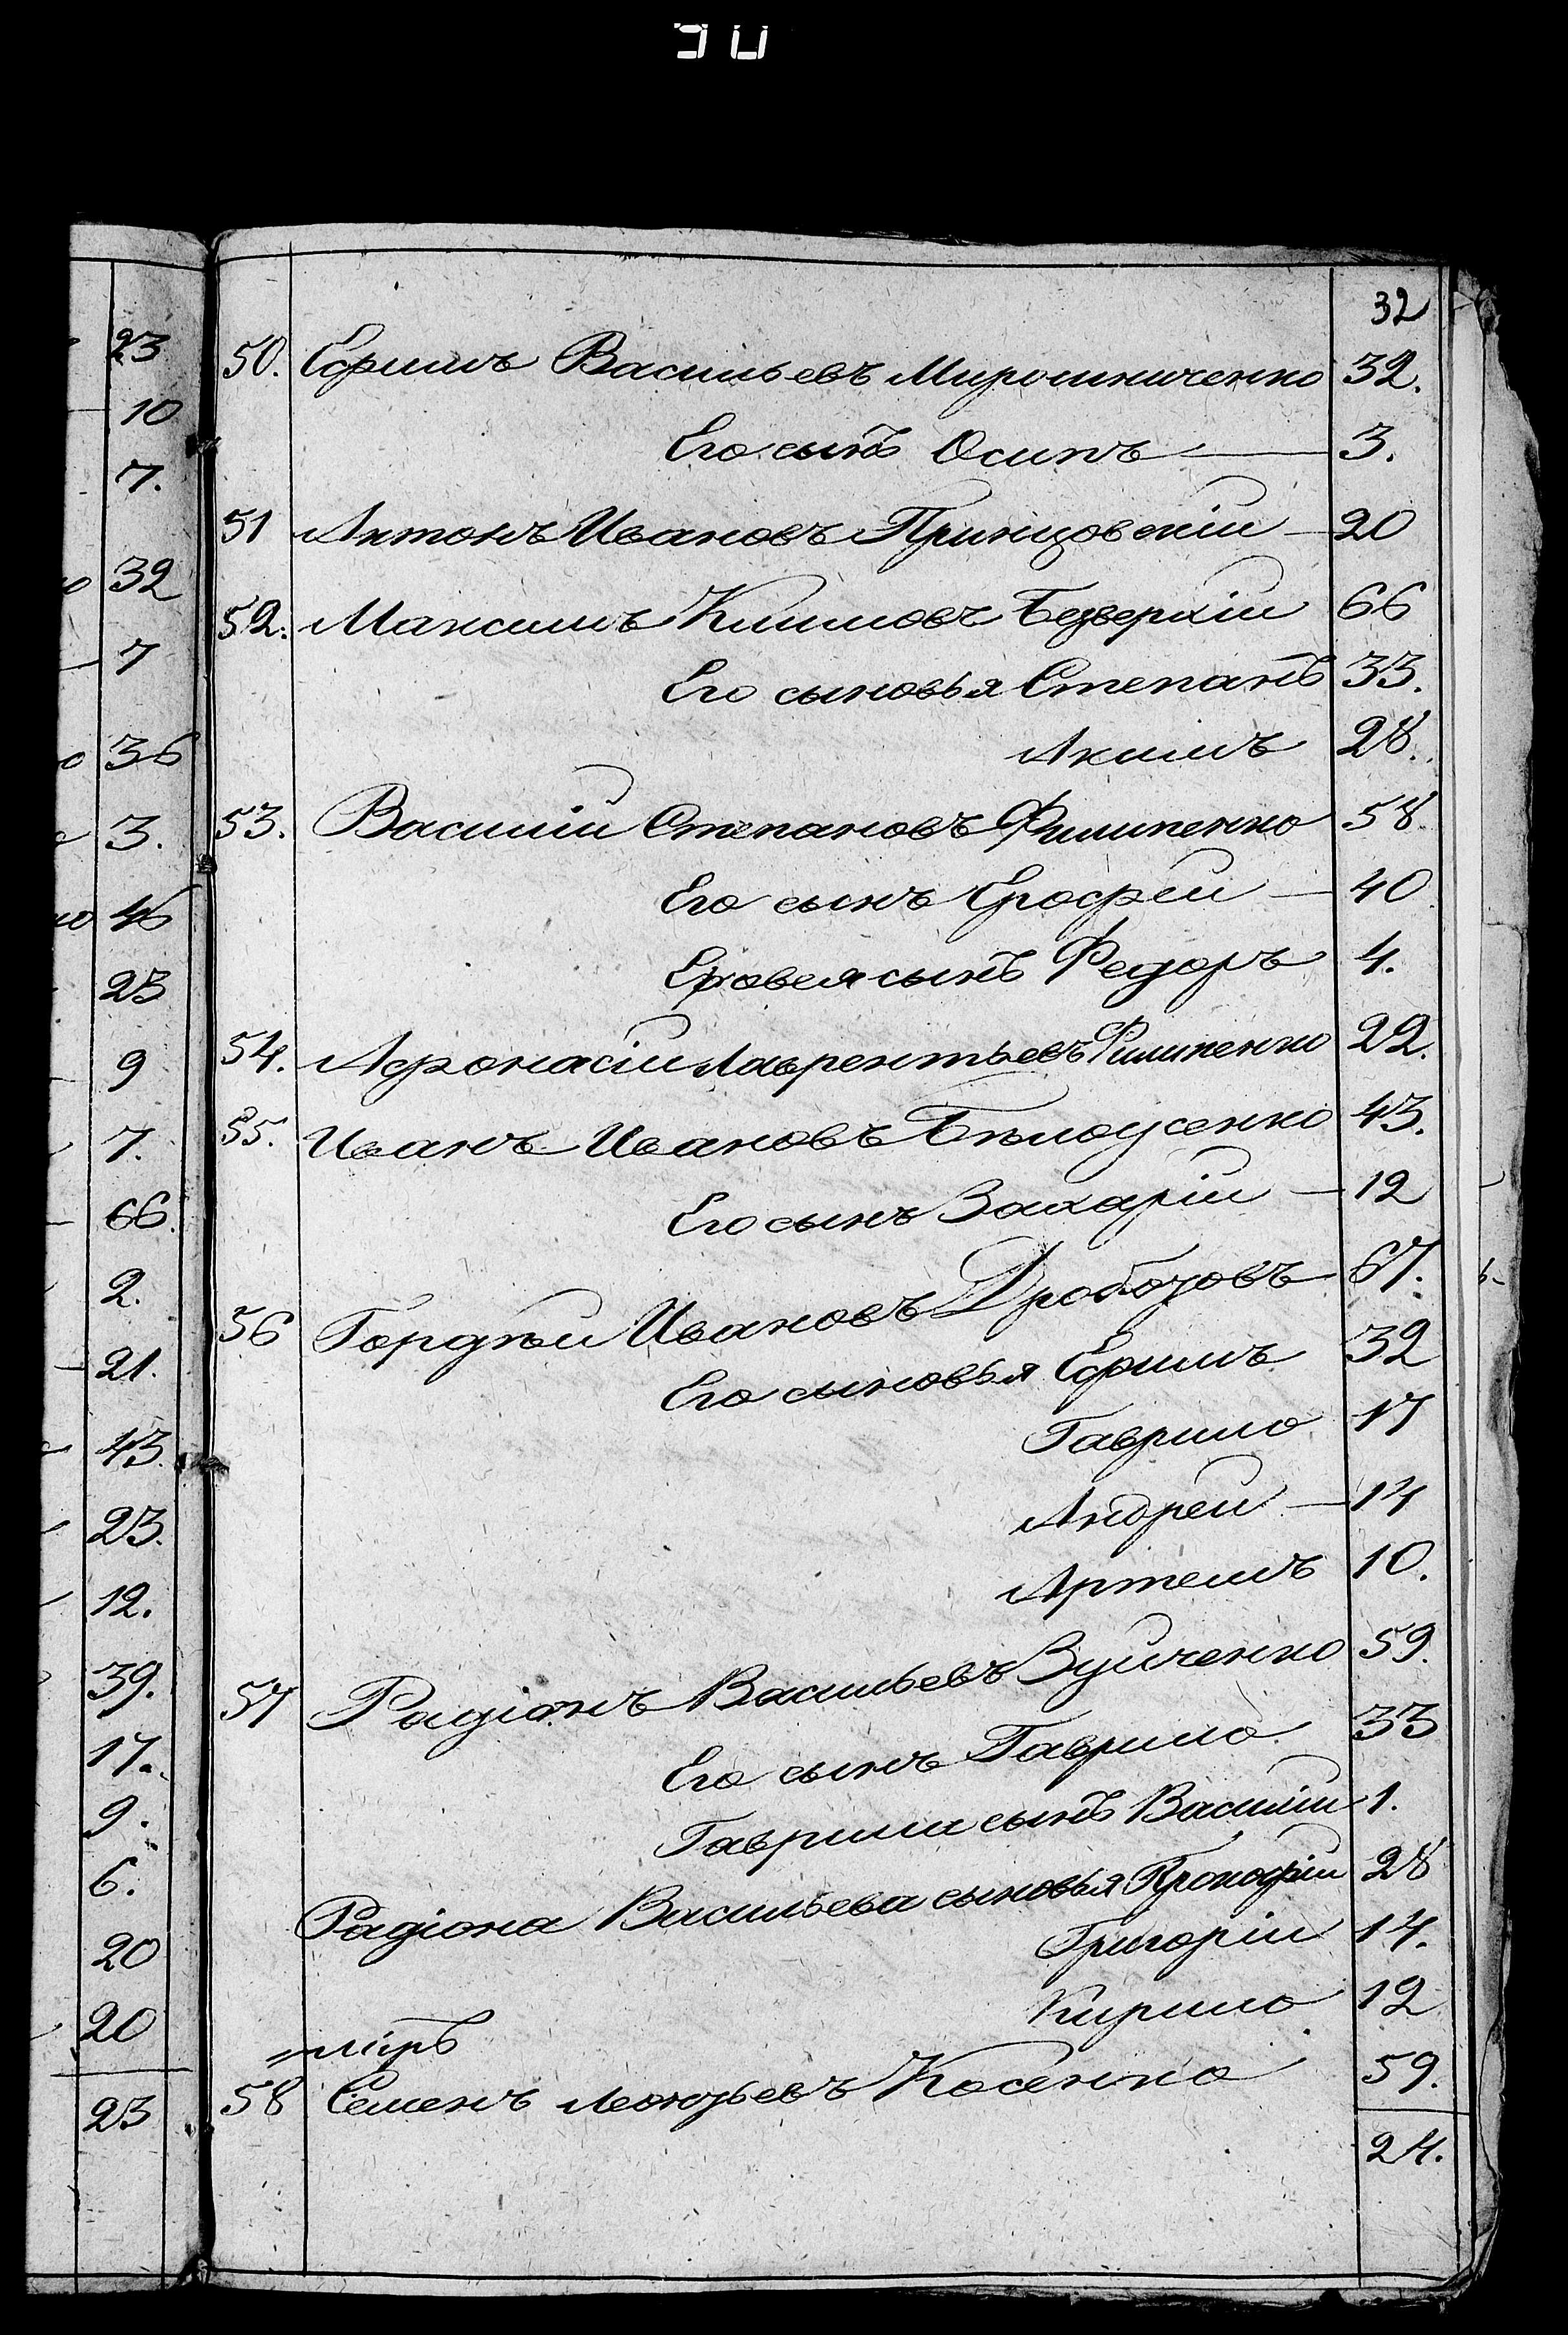 30
23
10
7.
32
7
36
3.
46
23
9
7.
66.
2.
21.
43.
23.
12.
39.
17.
9.
6.
20
20
23
32
50. Ефимъ Васильевъ Мирошниченко 32.
Его сынъ Осипъ — 3.
51 Антонъ Ивановъ Принцовскіи — 20
52. Максимъ Климовъ Безверхіи 66
Его сыновья Степанъ 33.
Акимъ 28.
53. Василіи Степановъ Филипенко 58.
Его сынъ Ерофеи — 40
Еровея сынъ Федоръ 4.
54. Афонасіи Лаврентьевъ Филипенко 22.
55. Иванъ Ивановъ Бѣлоусенко 43.
Его сынъ Захаріи — 12
56 Гордѣи Ивановъ 67.
Его сыновья Ефимъ 32
Гаврило 17
Андреи — 14
Артемъ 10.
57 Радіонъ Васильевъ Зуйченко 59.
Его сынъ Гаврило 33
Гаврили сынъ Василіи 1.
Радіона Васильева сыновья Прокофіи 28
Григоріи 14.
Кирило 12
58 Семенъ Леонтьевъ Косенко 59.
24.